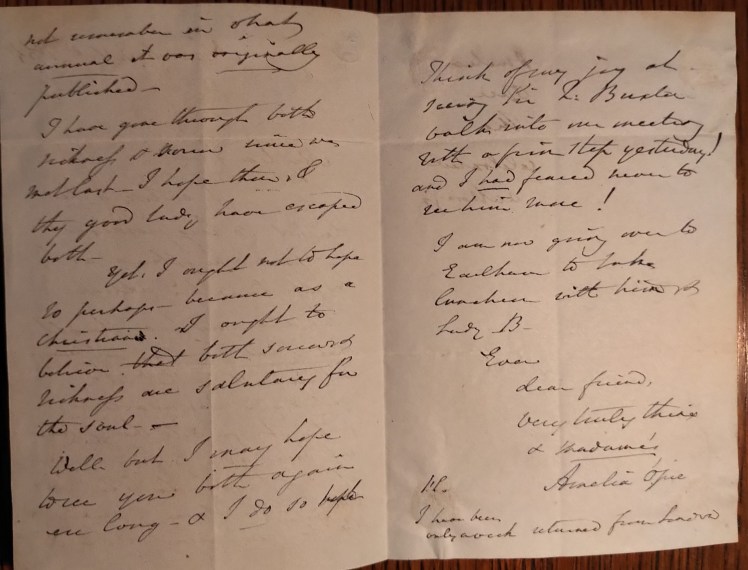 not remember in what
annual it was originally
published -
I have gone through both
sickness & sorrow since we
met last - I hope thou, &
thy good lady have escaped
both -
Yet, I ought not to hope
so perhaps - because as a
Christian I ought to
believe that both sorrow &
sickness are salutary for
the soul -
Well but I may hope
to see you both again
ere long - & I do so hope
Think of my joy at
seeing Sir T. Buxton
walk into our meeting
with a firm step yesterday!
and I had feared never to
see him more!
I am now going over to
Earlham to take
luncheon with him &
Lady B -
Ever
dear friend,
very truly thine
& Madame's
Amelia Opie
I have been
only a week returned from London